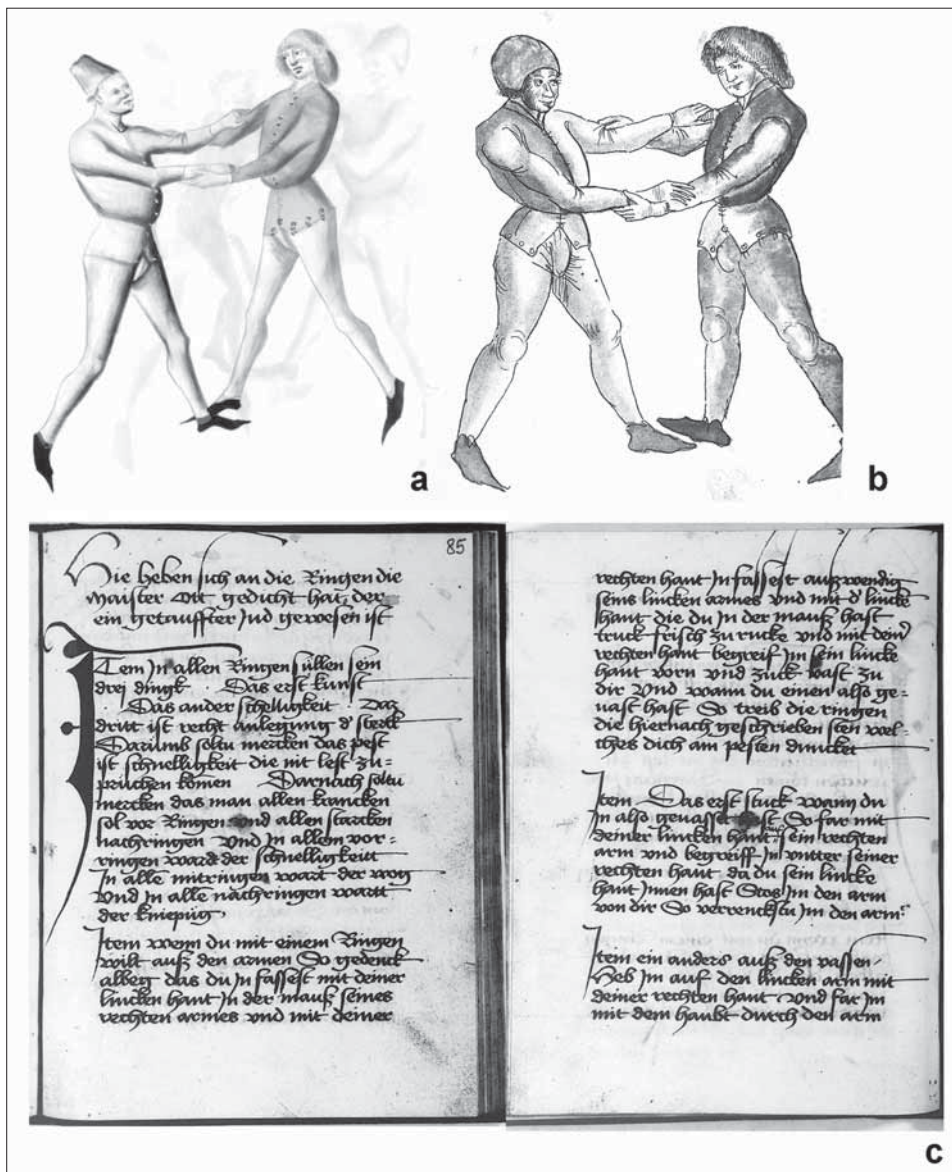 a
b
85
Hie heben sich an die Ringen die
maister Ott gedicht hat, der
ein getauffter Jud gewesen ist
Item In allen Ringen süllen sein
drej dingk Das erst kunst
Das ander schelligkeit Daz
dritt ist recht anlegung d' sterck
Darumb soltu mercken das pest
ist schnelligkeit die mit lest zu=
prüchen komen Darnach soltu
mercken das man allen krancken
sol vor Ringen vnd allen starcken
nachringen Vnd In allem vor=
ringen ward der schnelligkeitt
In allē mitringen wart der wog
Vnd In allē nachringen wartt
der kniepüg
Item wenn du mit einem Ringen
wilt auß den armen So gedenck
albeg das du In fassest mit deiner
lincken hant In der mauß seines
rechten armes vnd mit deiner
rechten hant In fassest außwendig
seins lincken armes Vnd mit d' lincke
hant die du In der mauß hast
truck frisch zu rucke vnd mit dein'
rechten hant begreif Im sein lincke
hant vorn vnd zuck vast zu
dir Vnd wann du einen also ge=
uast hast So treib die ringen
die hiernach geschrieben sten wel=
ches dich am pesten duncket
Item Das erst stuck wann du
In also geuasset hast So far mit
deiner lincken hant sein rechten
arm vnd begreiff In vntter seiner
rechten haut da du sein lincke
haut Innen hast Stos Im den arm
von dir So verrenckstu Im den arm
Item ein anders auß den vassen
Heb Im auf den lincken arm mit
deiner rechten haut Vnd far Im
mit dem haubt durch den arm
c